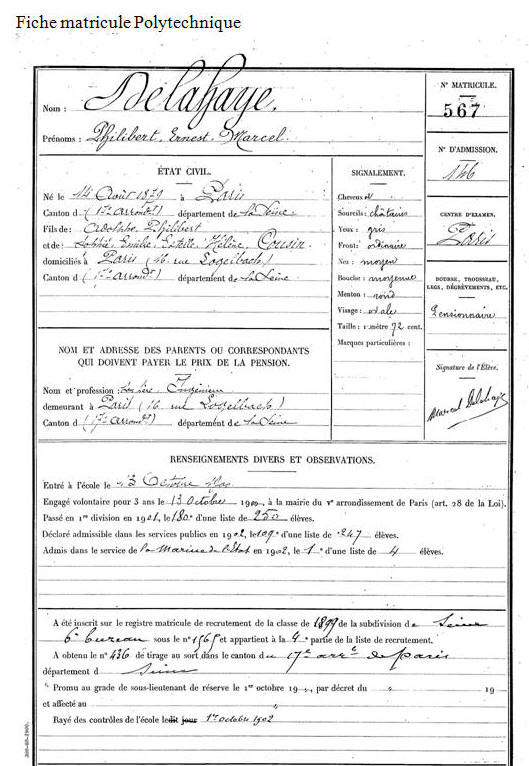 Fiche matricule Polytechnique
Nom : Delahaye.
Prénoms : Philibert, Ernest Marcel.
N° MATRICULE.
567
N° D'ADMISSION.
146
ÉTAT CIVIL.
Né le 14 Août 1879 à Paris
Canton d (17e arrondt) département de la Seine
Fils de : Adolphe Philibert
et de : Sophie Emilie Estelle Hélène Cousin
domiciliés à Paris (16 rue Logelbach)
Canton d (17e arrondt) département de la Seine
SIGNALEMENT.
Cheveux et
Sourcils : châtains
Yeux : gris
Front : ordinaire
Nez : moyen
Bouche : moyenne
Menton : rond
Visage : ovale
Taille : 1 mètre 72 cent.
Marques particulières :
CENTRE D'EXAMEN.
Paris
BOURSE, TROUSSEAU,
LEGS, DÉGRÈVEMENTS, ETC.
Pensionnaire
Signature de l'Élève.
Marcel Delahaye
NOM ET ADRESSE DES PARENTS OU CORRESPONDANTS
QUI DOIVENT PAYER LE PRIX DE LA PENSION.
Nom et profession : Ingénieur
demeurant à Paris (16 rue Logelbach)
Canton d (17e arrondt) département de la Seine
RENSEIGNEMENTS DIVERS ET OBSERVATIONS.
Entré à l'école le 13 Octobre
Engagé volontaire pour 3 ans le 13 octobre 1900, à la mairie du Ve arrondissement de Paris (art. 28 de la Loi).
Passé en 1re division en 1901, le 180e d'une liste de 250 élèves.
Déclaré admissible dans les services publics en 1902, le 109e d'une liste de 247 élèves.
Admis dans le service de la Marine de l'Etat en 1902, le 1er d'une liste de 4 élèves.
A été inscrit sur le registre matricule de recrutement de la classe de 1899 de la subdivision de Seine
6e bureau sous le n° 1565 et appartient à la 4e partie de la liste de recrutement.
A obtenu le n° 436 de tirage au sort dans le canton du 17e arrt de Paris
département d Seine
Promu au grade de sous-lieutenant de réserve le 1er octobre 19 , par décret du 19
et affecté au
Rayé des contrôles de l'école ledit jour 1er octobre 1902